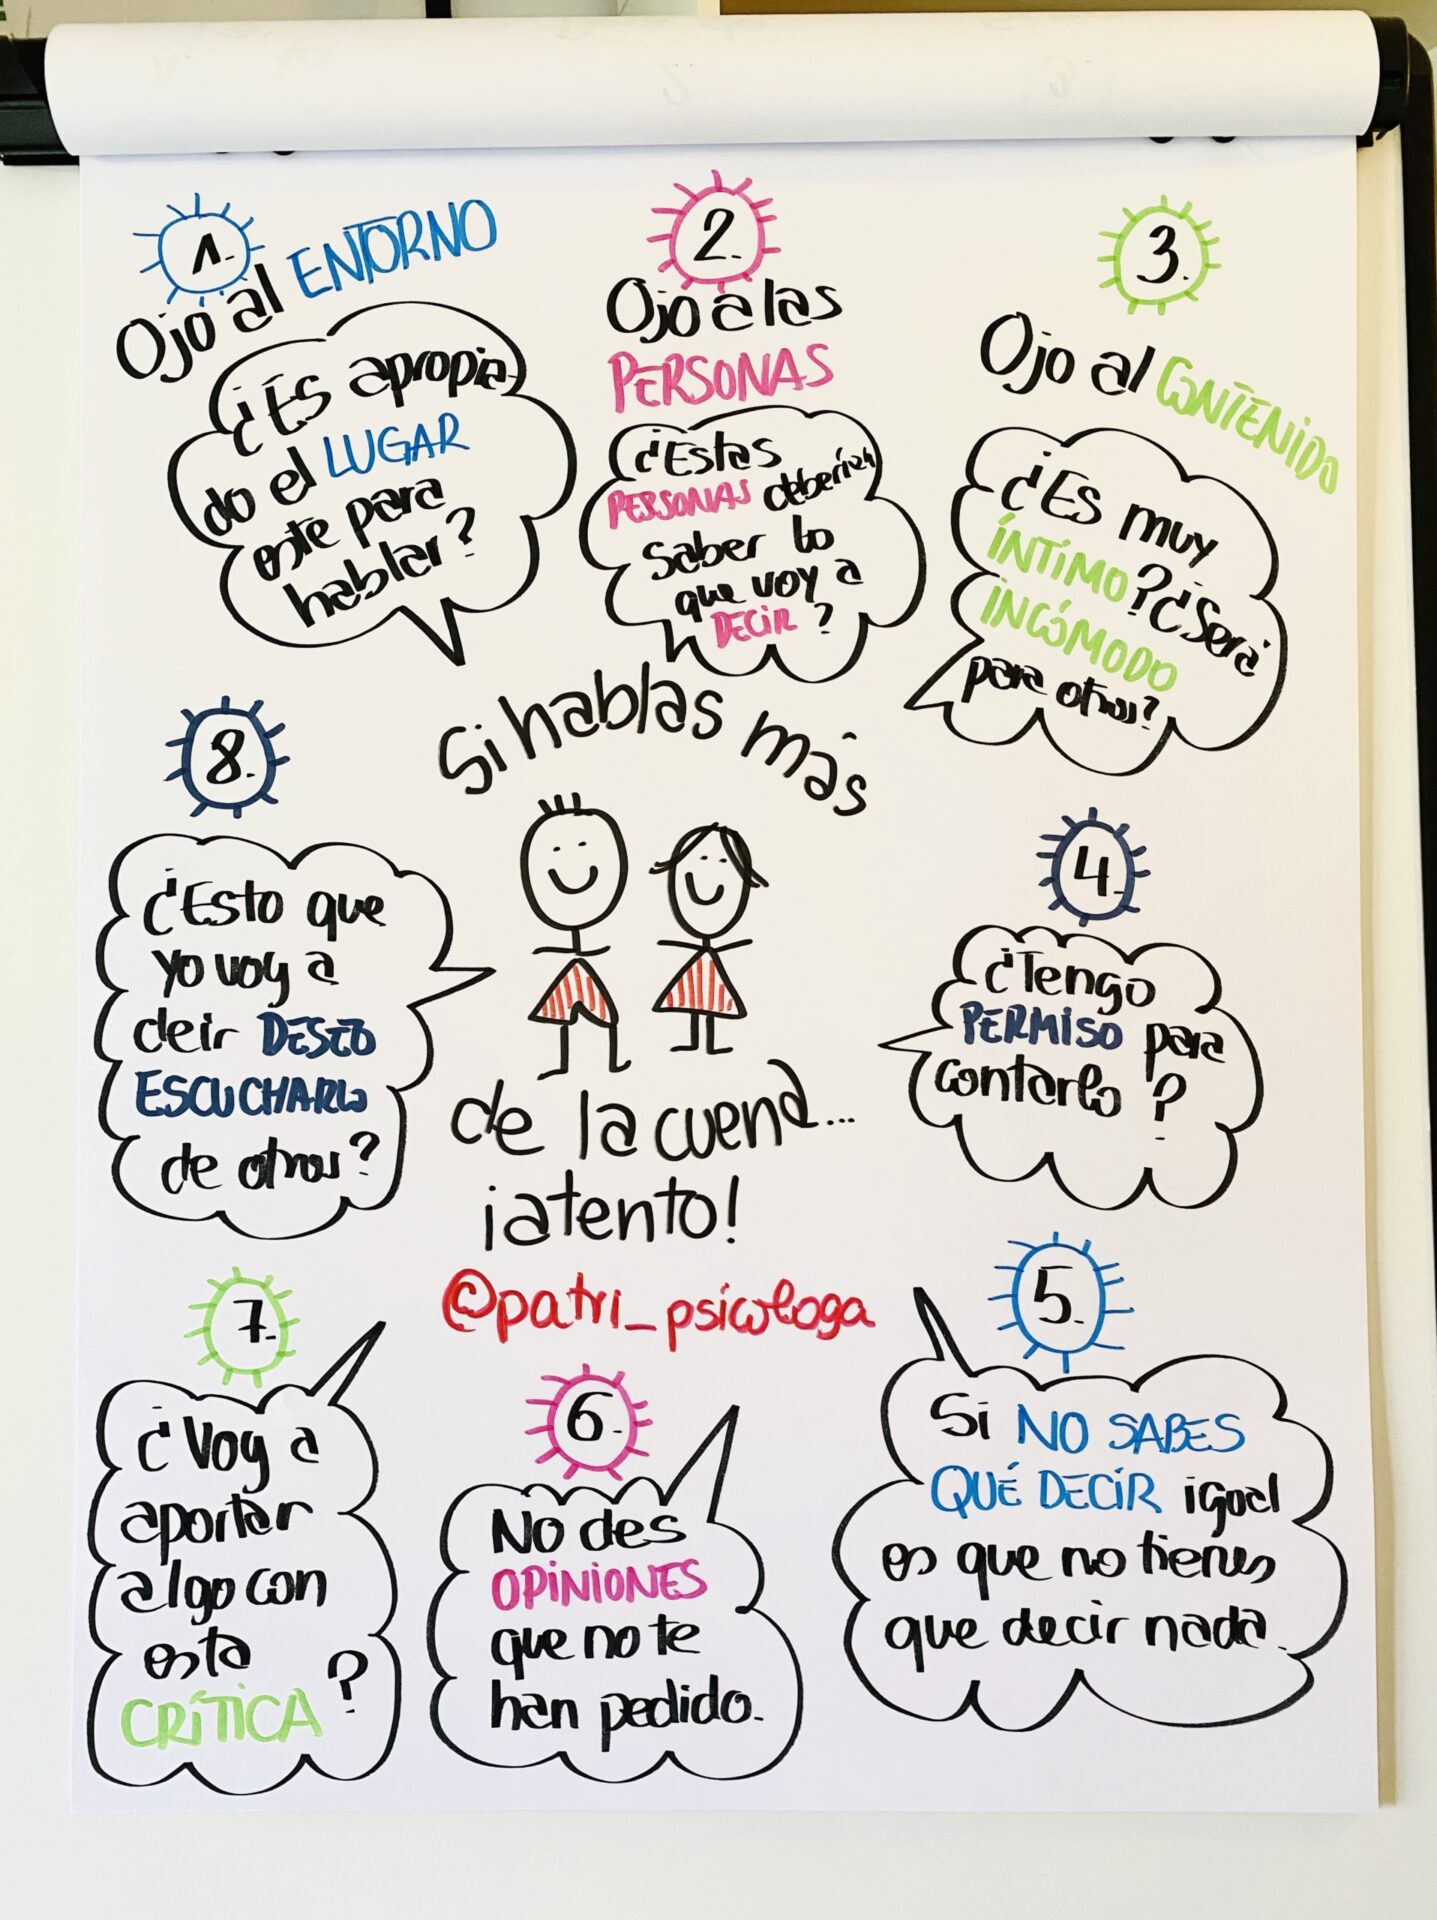 1.
Ojo al ENTORNO
¿Es apropia
do el LUGAR
este para
hablar?
2.
Ojo a las
PERSONAS
¿Estas
PERSONAS deberían
saber lo
que voy a
DECIR?
3.
Ojo al CONTENIDO
¿Es muy
ÍNTIMO? ¿Será
INCÓMODO
para otros?
Si hablas más
de la cuenta...
¡atento!
@patri_psicologa
4.
¿Tengo
PERMISO para
contarlo?
5.
Si NO SABES
QUÉ DECIR igual
es que no tienes
que decir nada.
6.
No des
OPINIONES
que no te
han pedido.
7.
¿Voy a
aportar
algo con
esta
CRÍTICA?
8.
¿Esto que
yo voy a
deir DESEO
ESCUCHARLO
de otros?